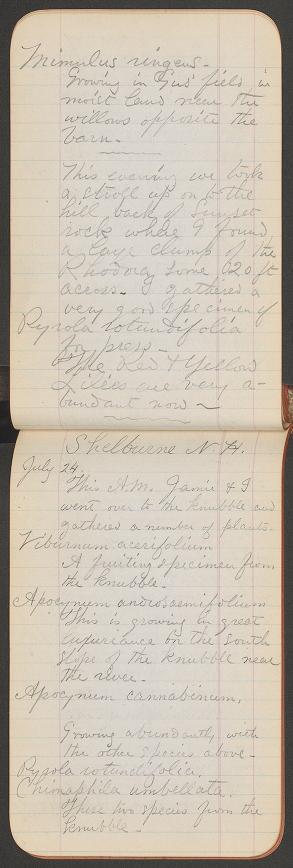 Mimulus ringens.
Growing in Gus' field in
moist land near the
willows opposite the
barn.
This evening we took
a stroll up on to the
hill back of Sunset
rock where I found
a large clump of the
Rhodora some 20 ft
across. I gathered a
very good specimen of
Pyrola rotundifolia
for press.
The Red & Yellow
Lilies are very a-
bundant now
Shelburne N. H.
July 24.
This A.M. Jamie & I
went over to the Knubble and
gathered a number of plants.
Viburnum acerifolium
A fruiting specimen from
the Knubble.
Apocynum androsaemifolium
This is growing in great
luxuriance on the south
slope of the Knubble near
the river.
Apocynum cannabinum.
Growing abundantly with
the other species above.
Pyrola rotundifolia.
Chimaphila umbellata.
These two species from the
Knubble.